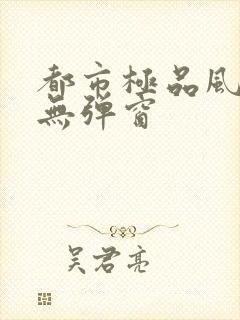 都市極品風
無彈窗
吴君亮